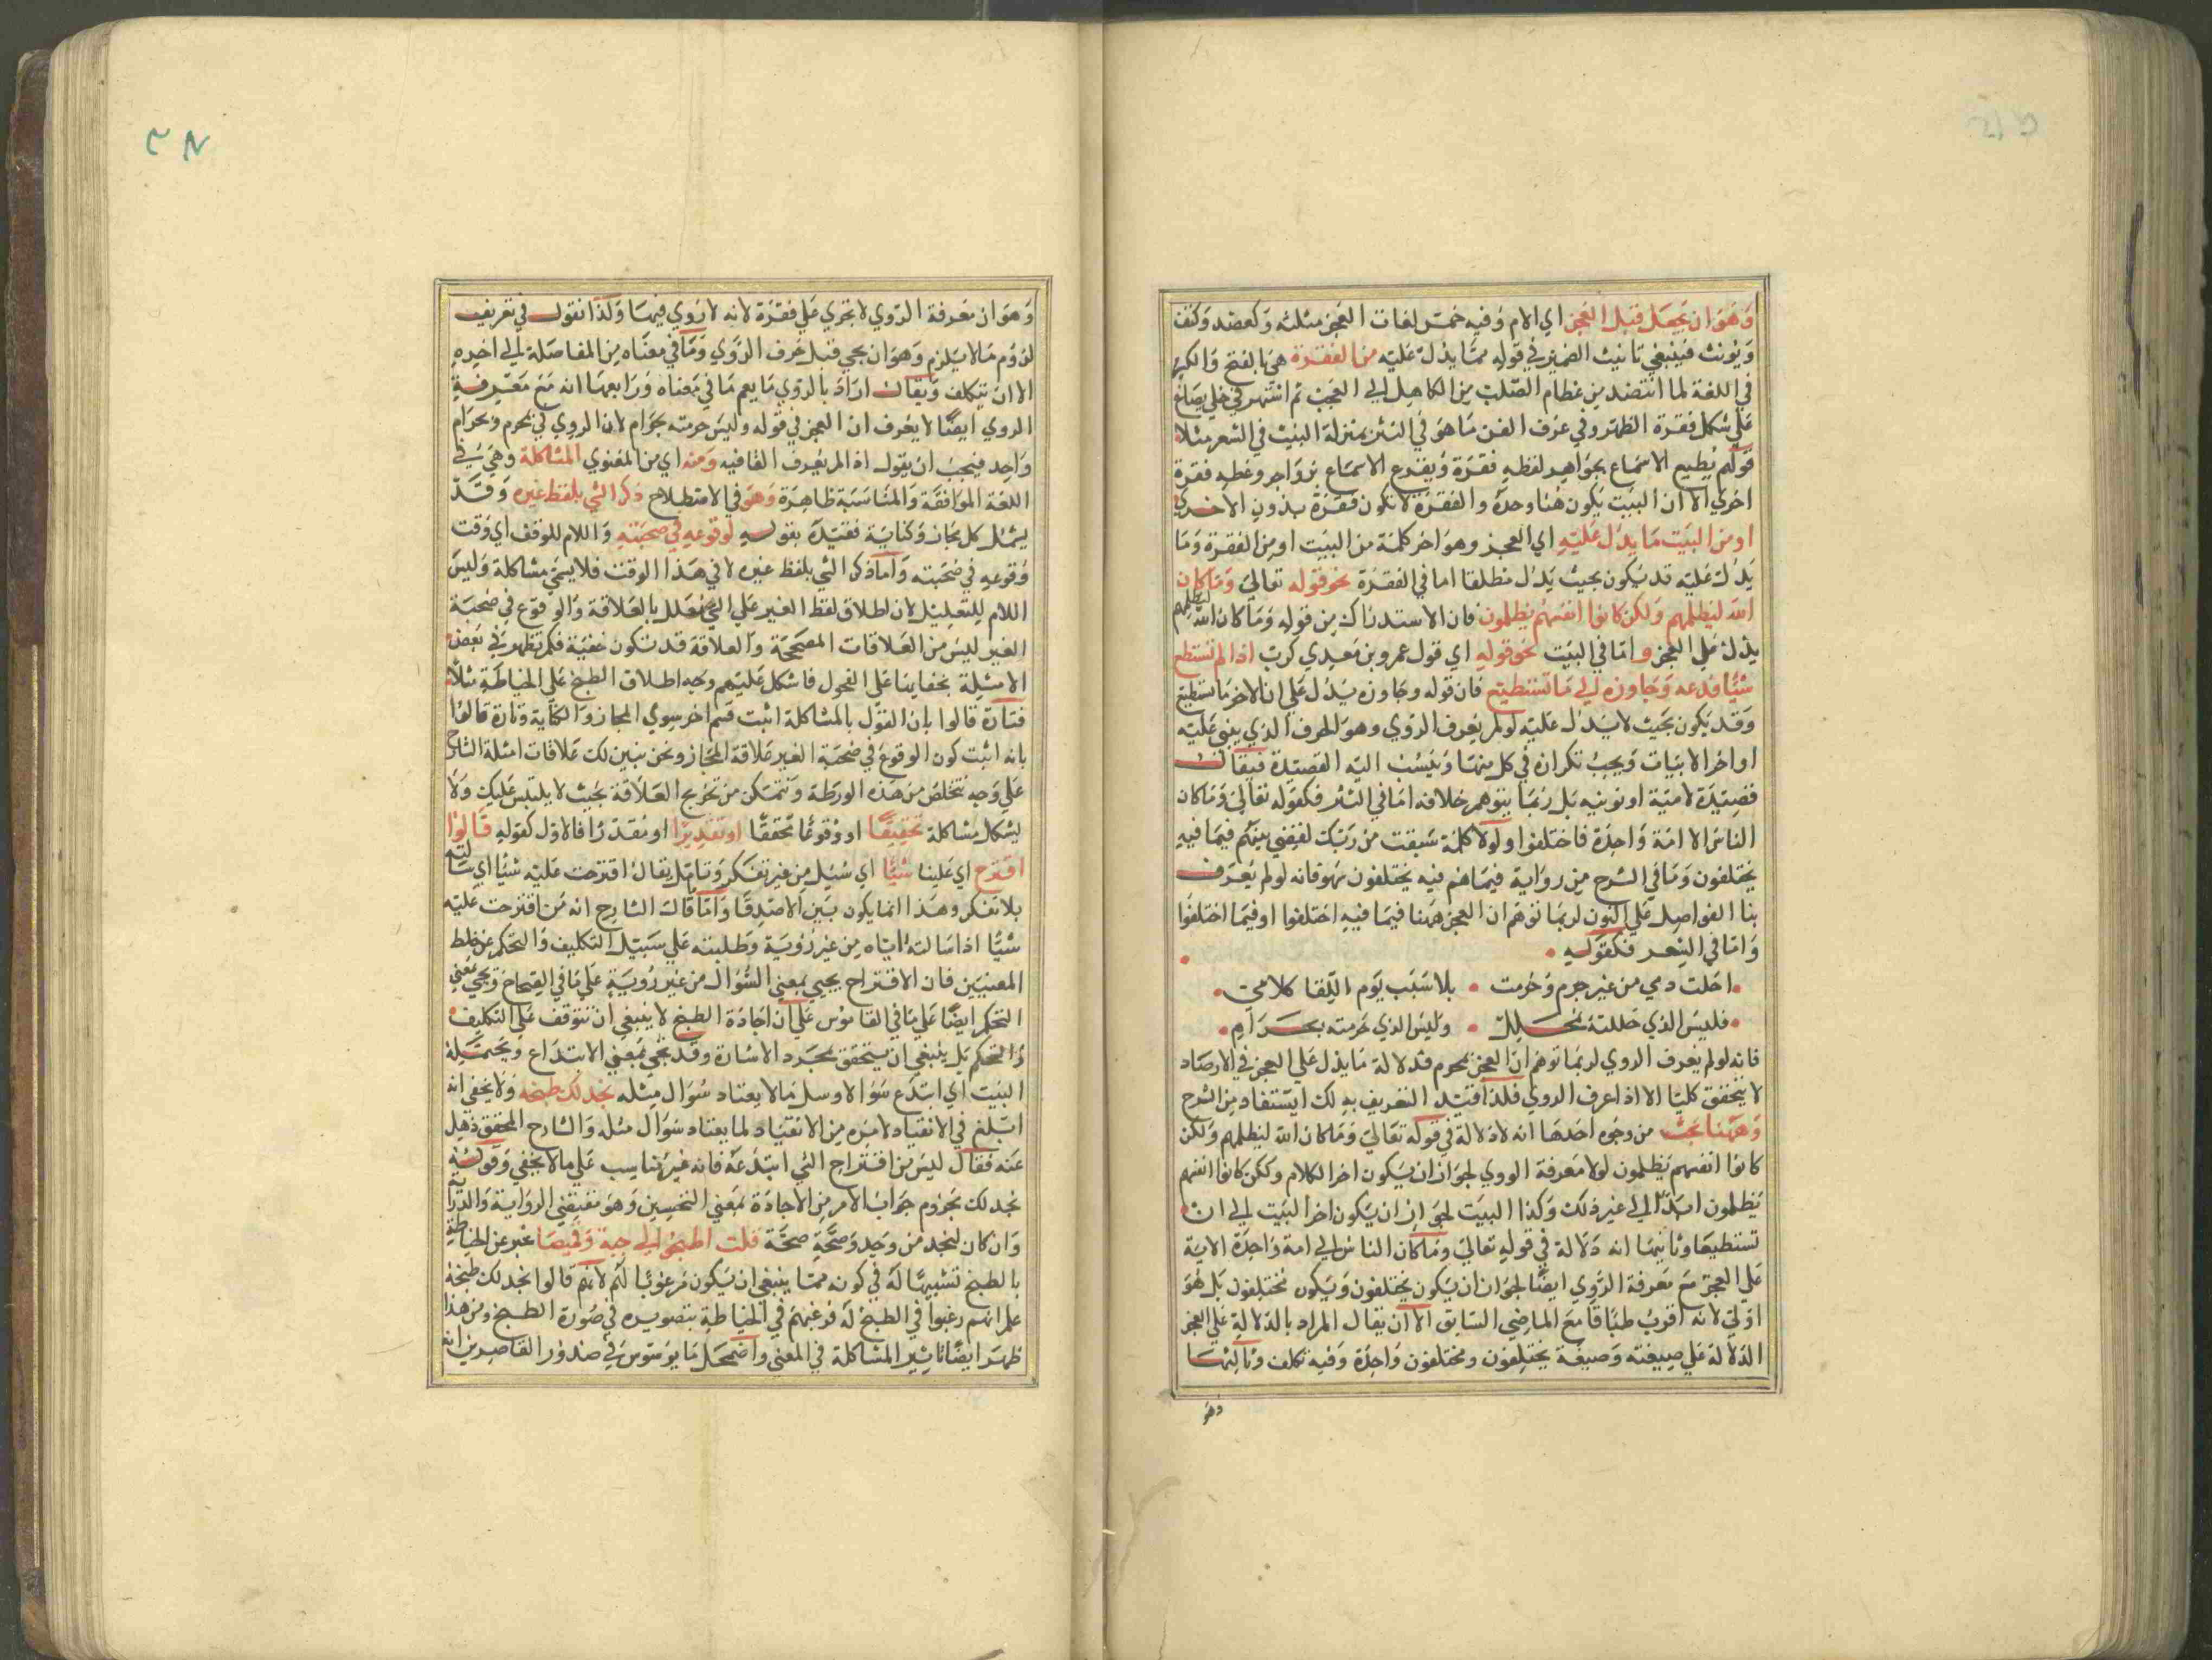 وهو ان يجعل قبل العجز اي الامر وفيه خمس لغات العجز مثلثه وكعضد وكتف
ويونث فينبغي تانيث الضمير في قوله مما يدل عليه من الفقرة هي بالفتح والكسر
في اللغة لما انتضد من عظام الصلب من الكاهل الي العجب ثم اشتهر في حلي يصاغ
علي شكل فقرة الظهر وفي عرف الفن ما هو في النثر بمنزلة البيت في الشعر مثلا
قولهم يطبع الاسماع بجواهر لفظه فقرة ويقرع الاسماع بزواجر وعظه فقرة
اخري الا ان البيت يكون هنا وحده والفقرة لا تكون فقرة بدون الاخري
او من البيت ما يدل عليه اي العجز وهو اخر كلمة من البيت او من الفقرة وما
يدل عليه قد يكون بحيث يدل مطلقا اما في الفقرة نحو قوله تعالي وما كان
الله ليظلمهم ولكن كانوا انفسهم يظلمون فان الاستدراك من قوله وما كان الله ليظلمهم
يدل علي العجز و اما في البيت نحو قوله اي قول عمرو بن معدي كرب اذا لم تستطع
شيئا فدعه وجاوزه الي ما تستطيع فان قوله وجاوزه يدل علي ان الاخر ما تستطيع
وقد يكون بحيث لا يدل عليه لو لم يعرف الروي وهو الحرف الذي يبني عليه
اواخر الابيات ويجب تكراره في كل منها وينسب اليه القصيدة فيقال
قصيدة لامية او نونيه بل ربما يتوهم خلافه اما في النثر فكقوله تعالي وما كان
الناس الا امة واحدة فاختلفوا ولولا كلمة سبقت من ربك لقضي بينهم فيما فيه
يختلفون وما في الشرح من رواية فيما هم فيه يختلفون سهو فانه لو لم يعرف
بنا الفواصل علي النون لربما توهم ان العجز ههنا فيما فيه اختلفوا او فيما اختلفوا
واما في الشعر فكقوله
احلت دمي من غير جرم وحرمت بلا سبب يوم اللقا كلامي
فليس الذي حللته بمحلل وليس الذي حرمته بحرام
فانه لو لم يعرف الروي لربما توهم ان العجز بمحرم فدلالة ما يدل علي العجز في الارصاد
لا يتحقق كليا الا اذا عرف الروي فلذا قيد التعريف به لك ايستفاد من الشرح
وههنا بحث من وجوه احدها انه لا دلالة في قوله تعالي وما كان الله ليظلمهم ولكن
كانوا انفسهم يظلمون لولا معرفة الروي لجواز ان يكون اخر الكلام ولكن كانوا انفسهم
يظلمون ابدا الي غير ذلك وكذا البيت لجواز ان يكون اخر البيت الي ان
تستطيعا وثانيها انه دلالة في قوله تعالي وما كان الناس الي امة واحدة الاية
علي العجز مع معرفة الروي ايضا لجواز ان يكون يختلفون ويكون مختلفون بل هو
اولي لانه اقرب طباقا مع الماضي السابق الا ان يقال المراد بالدلالة علي العجز
الدلالة علي صيغته وصيغة يختلفون ومختلفون واحدة وفيه تكلف وثالثها
وهو
وهو ان معرفة الروي لا تجري علي فقرة لانه لا روي فيها وكذا نقول في تعريف
لزوم ما لا يلزم وهو ان يجي قبل حرف الروي وما في معناه من الفاصلة الي اخره
الا ان يتكلف ويقال اراد بالروي ما يعم ما في معناه ورابعها انه مع معرفة
الروي ايضا لا يعرف ان العجز في قوله وليس حرمته بحرام لان الروي في محرم وحرام
واحد فيجب ان يقول اذا لم يعرف القافيه ومنه اي من المعنوي المشاكلة وهي في
اللغة الموافقة والمناسبة ظاهرة وهو في الاصطلاح ذكر الشي بلفظ غيره وقد
يشمل كل مجاز وكناية فقيده بقوله لوقوعه في صحبته واللام للوقت اي وقت
وقوعه في صحبته واما ذكر الشي بلفظ غيره لا في هذا الوقت فلا يسمي مشاكلة وليس
اللام للتعليل لان اطلاق لفظ الغير علي الشي معلل بالعلاقة والوقوع في صحبة
الغير ليس من العلاقات المصححة والعلاقة قد تكون خفية فلم تظهر في بعض
الامثلة بخفاينا علي الفحول فاشكل عليهم وجه اطلاق الطبخ علي الخياطة مثلا
فتارة قالوا بان القول بالمشاكلة اثبت قسم اخر سوي المجاز والكناية وتارة قالوا
بانه اثبت كون الوقوع في صحبة الغير علاقة المجاز ونحن نبين لك علاقات امثلة الشارح
علي وجه تتخلص من هذه الورطة وتتمكن من تخريج العلاقة بحيث لا يلتبس عليك ولا
يشكل مشاكلة تحقيقا او وقوعا تحققا او تقديرا او مقدرا فالاول كقوله قالوا
اقترح اي علينا شيئا اي سئل من غير تفكر وتامل يقال اقترحت عليه شيئا اي سالته
بلا تفكر وهذا انما يكون بين الاصدقا واما قال الشارح انه من اقترحت عليه
شيئا اذا سالته اياه من غير روية وطلبته علي سبيل التكليف والتحكم عن خلط
المعنيين فان الاقتراح يجيي بمعني السؤال من غير روية علي ما في الصحاح ويجي بمعني
التحكم ايضا علي ما في القاموس علي ان اجادة الطبخ لا ينبغي ان تتوقف علي التكليف
والتحكم بل ينبغي ان يتحقق بمجرد الاشارة وقد يجي بمعني الابتداع ويحتمله
البيت اي ابتدع سؤالا وسل ما لا يعتاد سؤال مثله نجد لك طبخه ولا يخفي انه
ابلغ في الانقياد لامره من الانقياد لما يعتاد سؤال مثله والشارح المحقق ذهل
عنه فقال ليس من اقتراح الشي ابتدعه فانه غير مناسب علي ما لا يخفي وقوله
نجد لك مجزوم جواب الامر من الاجادة بمعني التحسين وهو مقتضي الرواية والدراية
وان كان لنجد من وجد وصحة قلت اطبخوا لي جبة وقميصا عبر عن الخياطة
بالطبخ تشبيها له في كونه مما ينبغي ان يكون مرغوبا لهم لانهم قالوا نجد لك طبخه
علم انهم رغبوا في الطبخ له فرغبهم في الخياطة بتصويره في صورة الطبخ ومن هذا
ظهر ايضا تاثير المشاكلة في المعني واضمحل ما يوسوس في صدور القاصرين انه